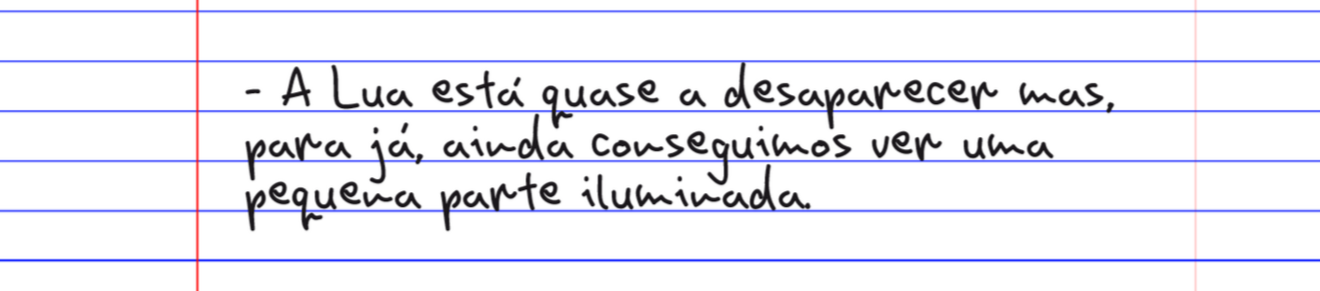 - A Lua está quase a desaparecer mas,
para já, ainda conseguimos ver uma
pequena parte iluminada.